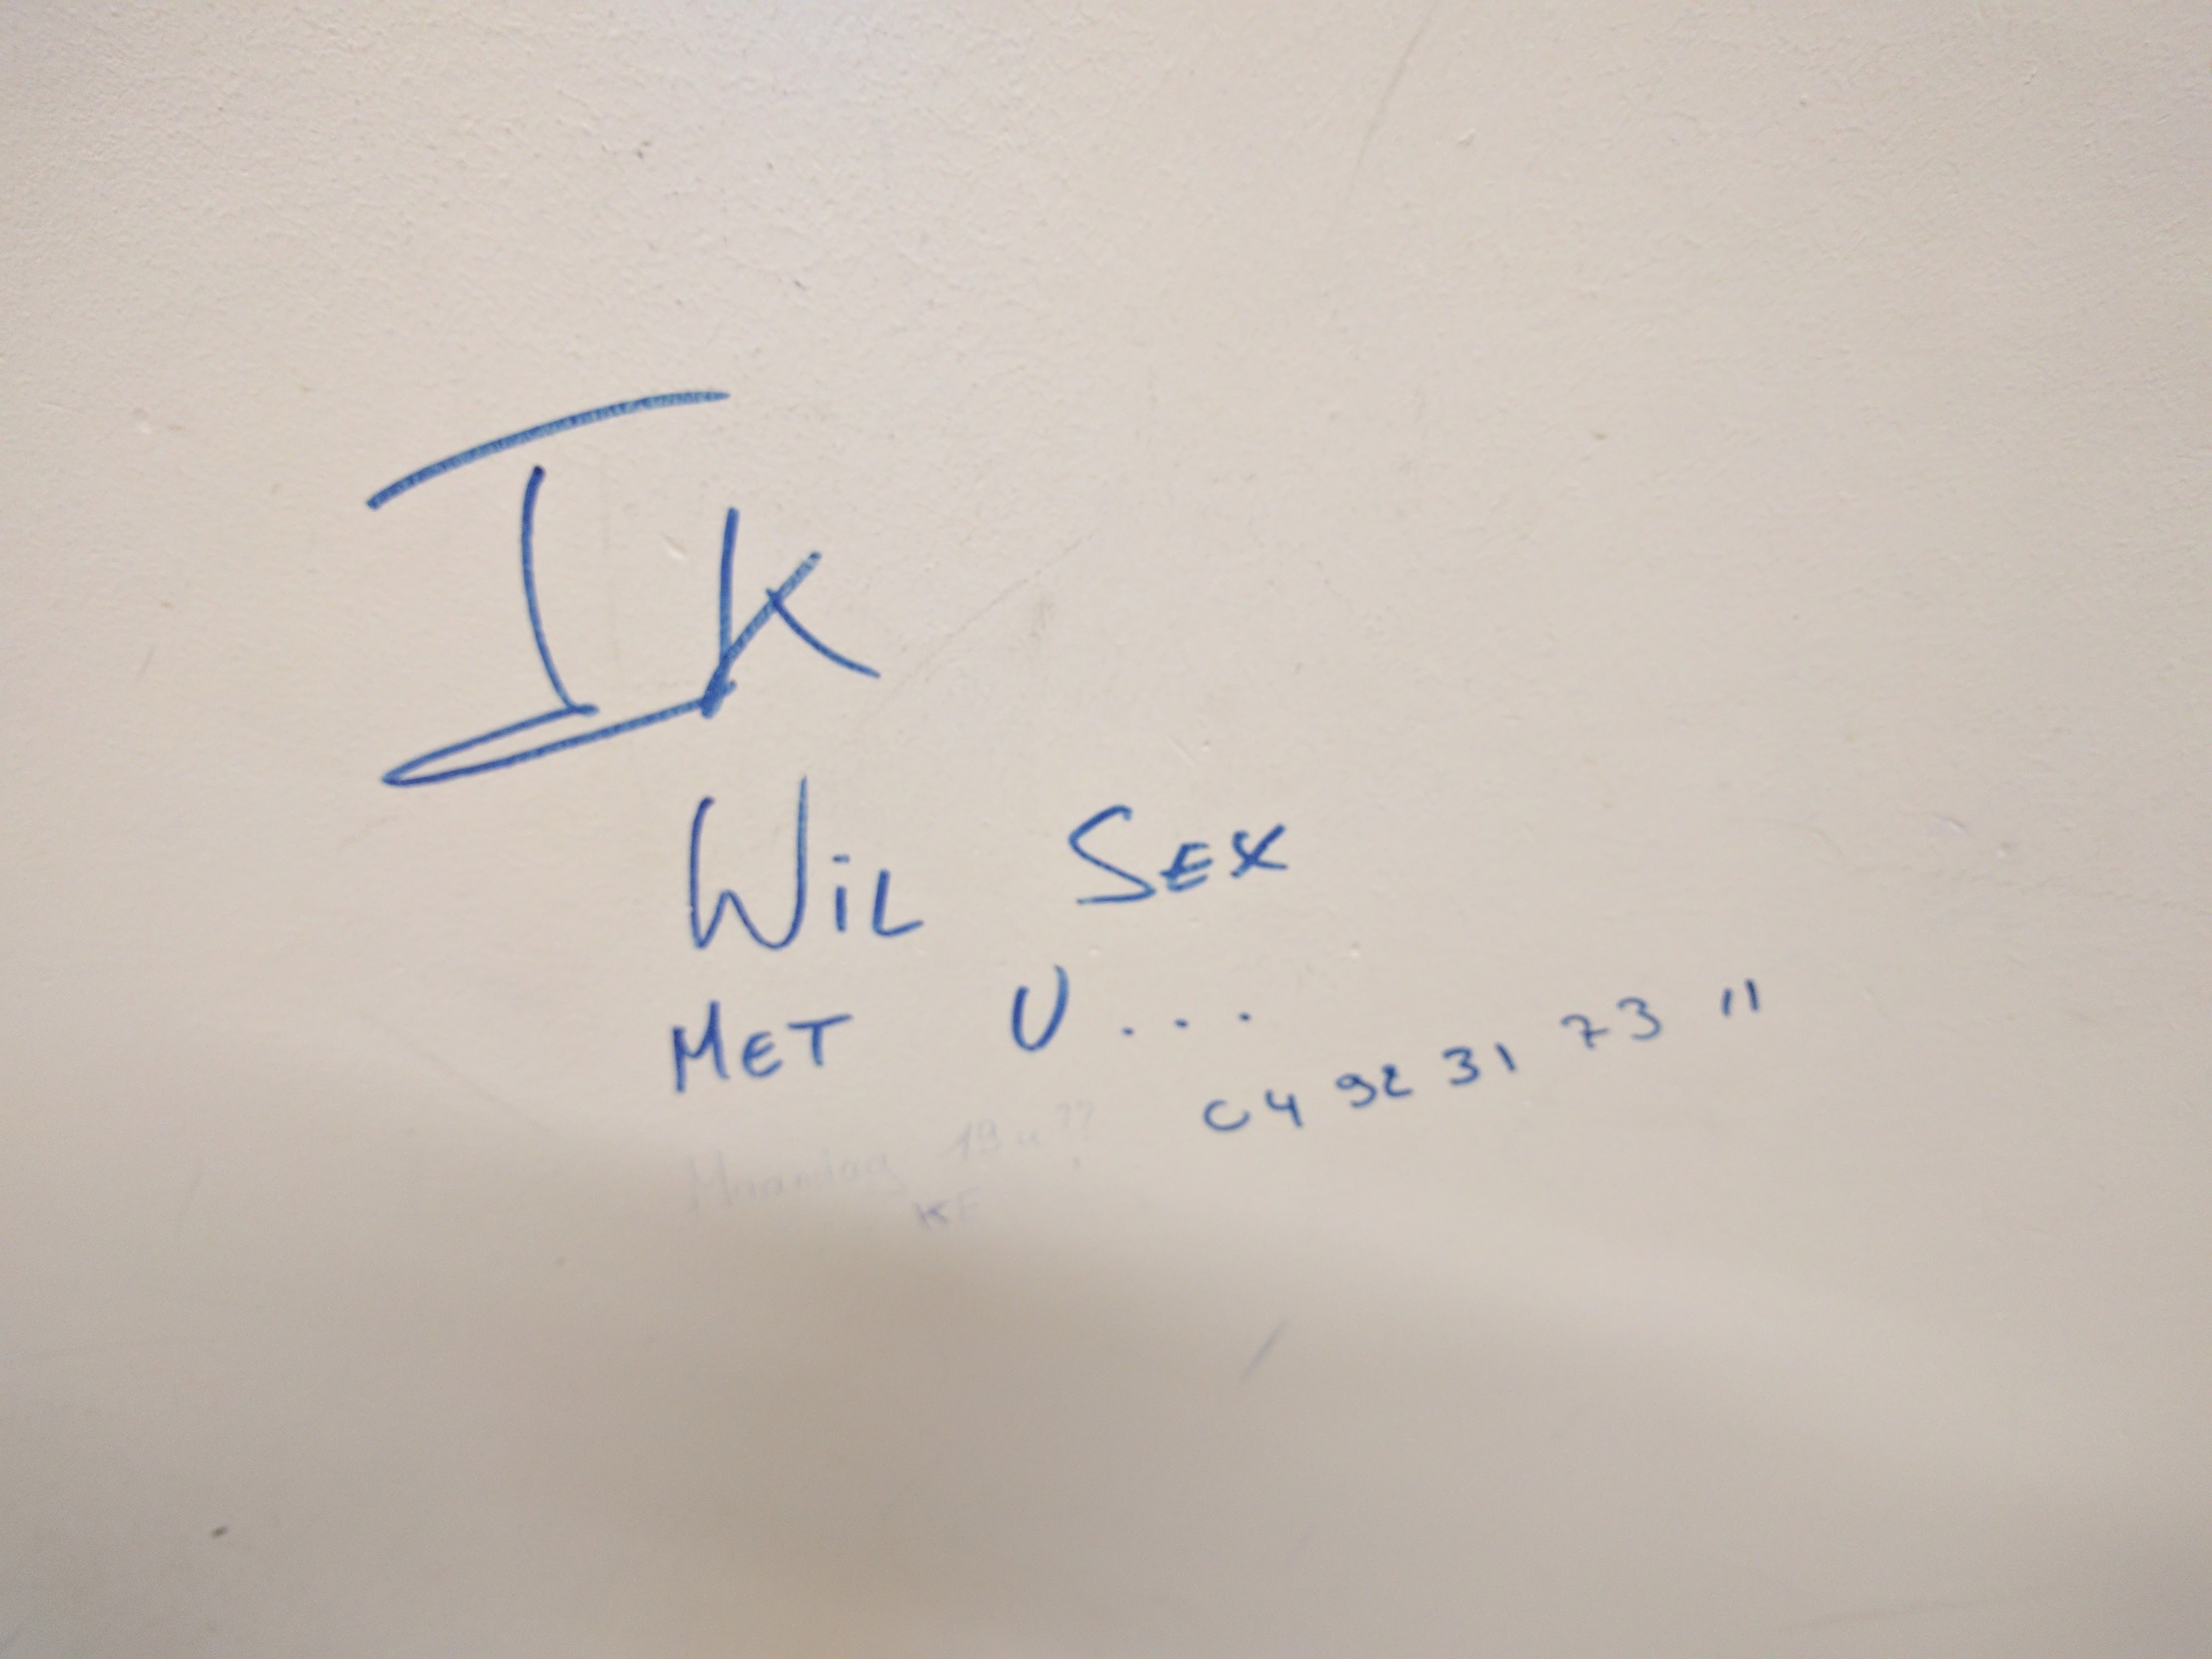 Ik
Wil Sex
Met U...
04 92 31 73 11
Maandag 19u??
KE